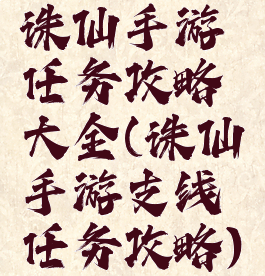 诛仙手游
任务攻略
大全(诛仙
手游支线
任务攻略)